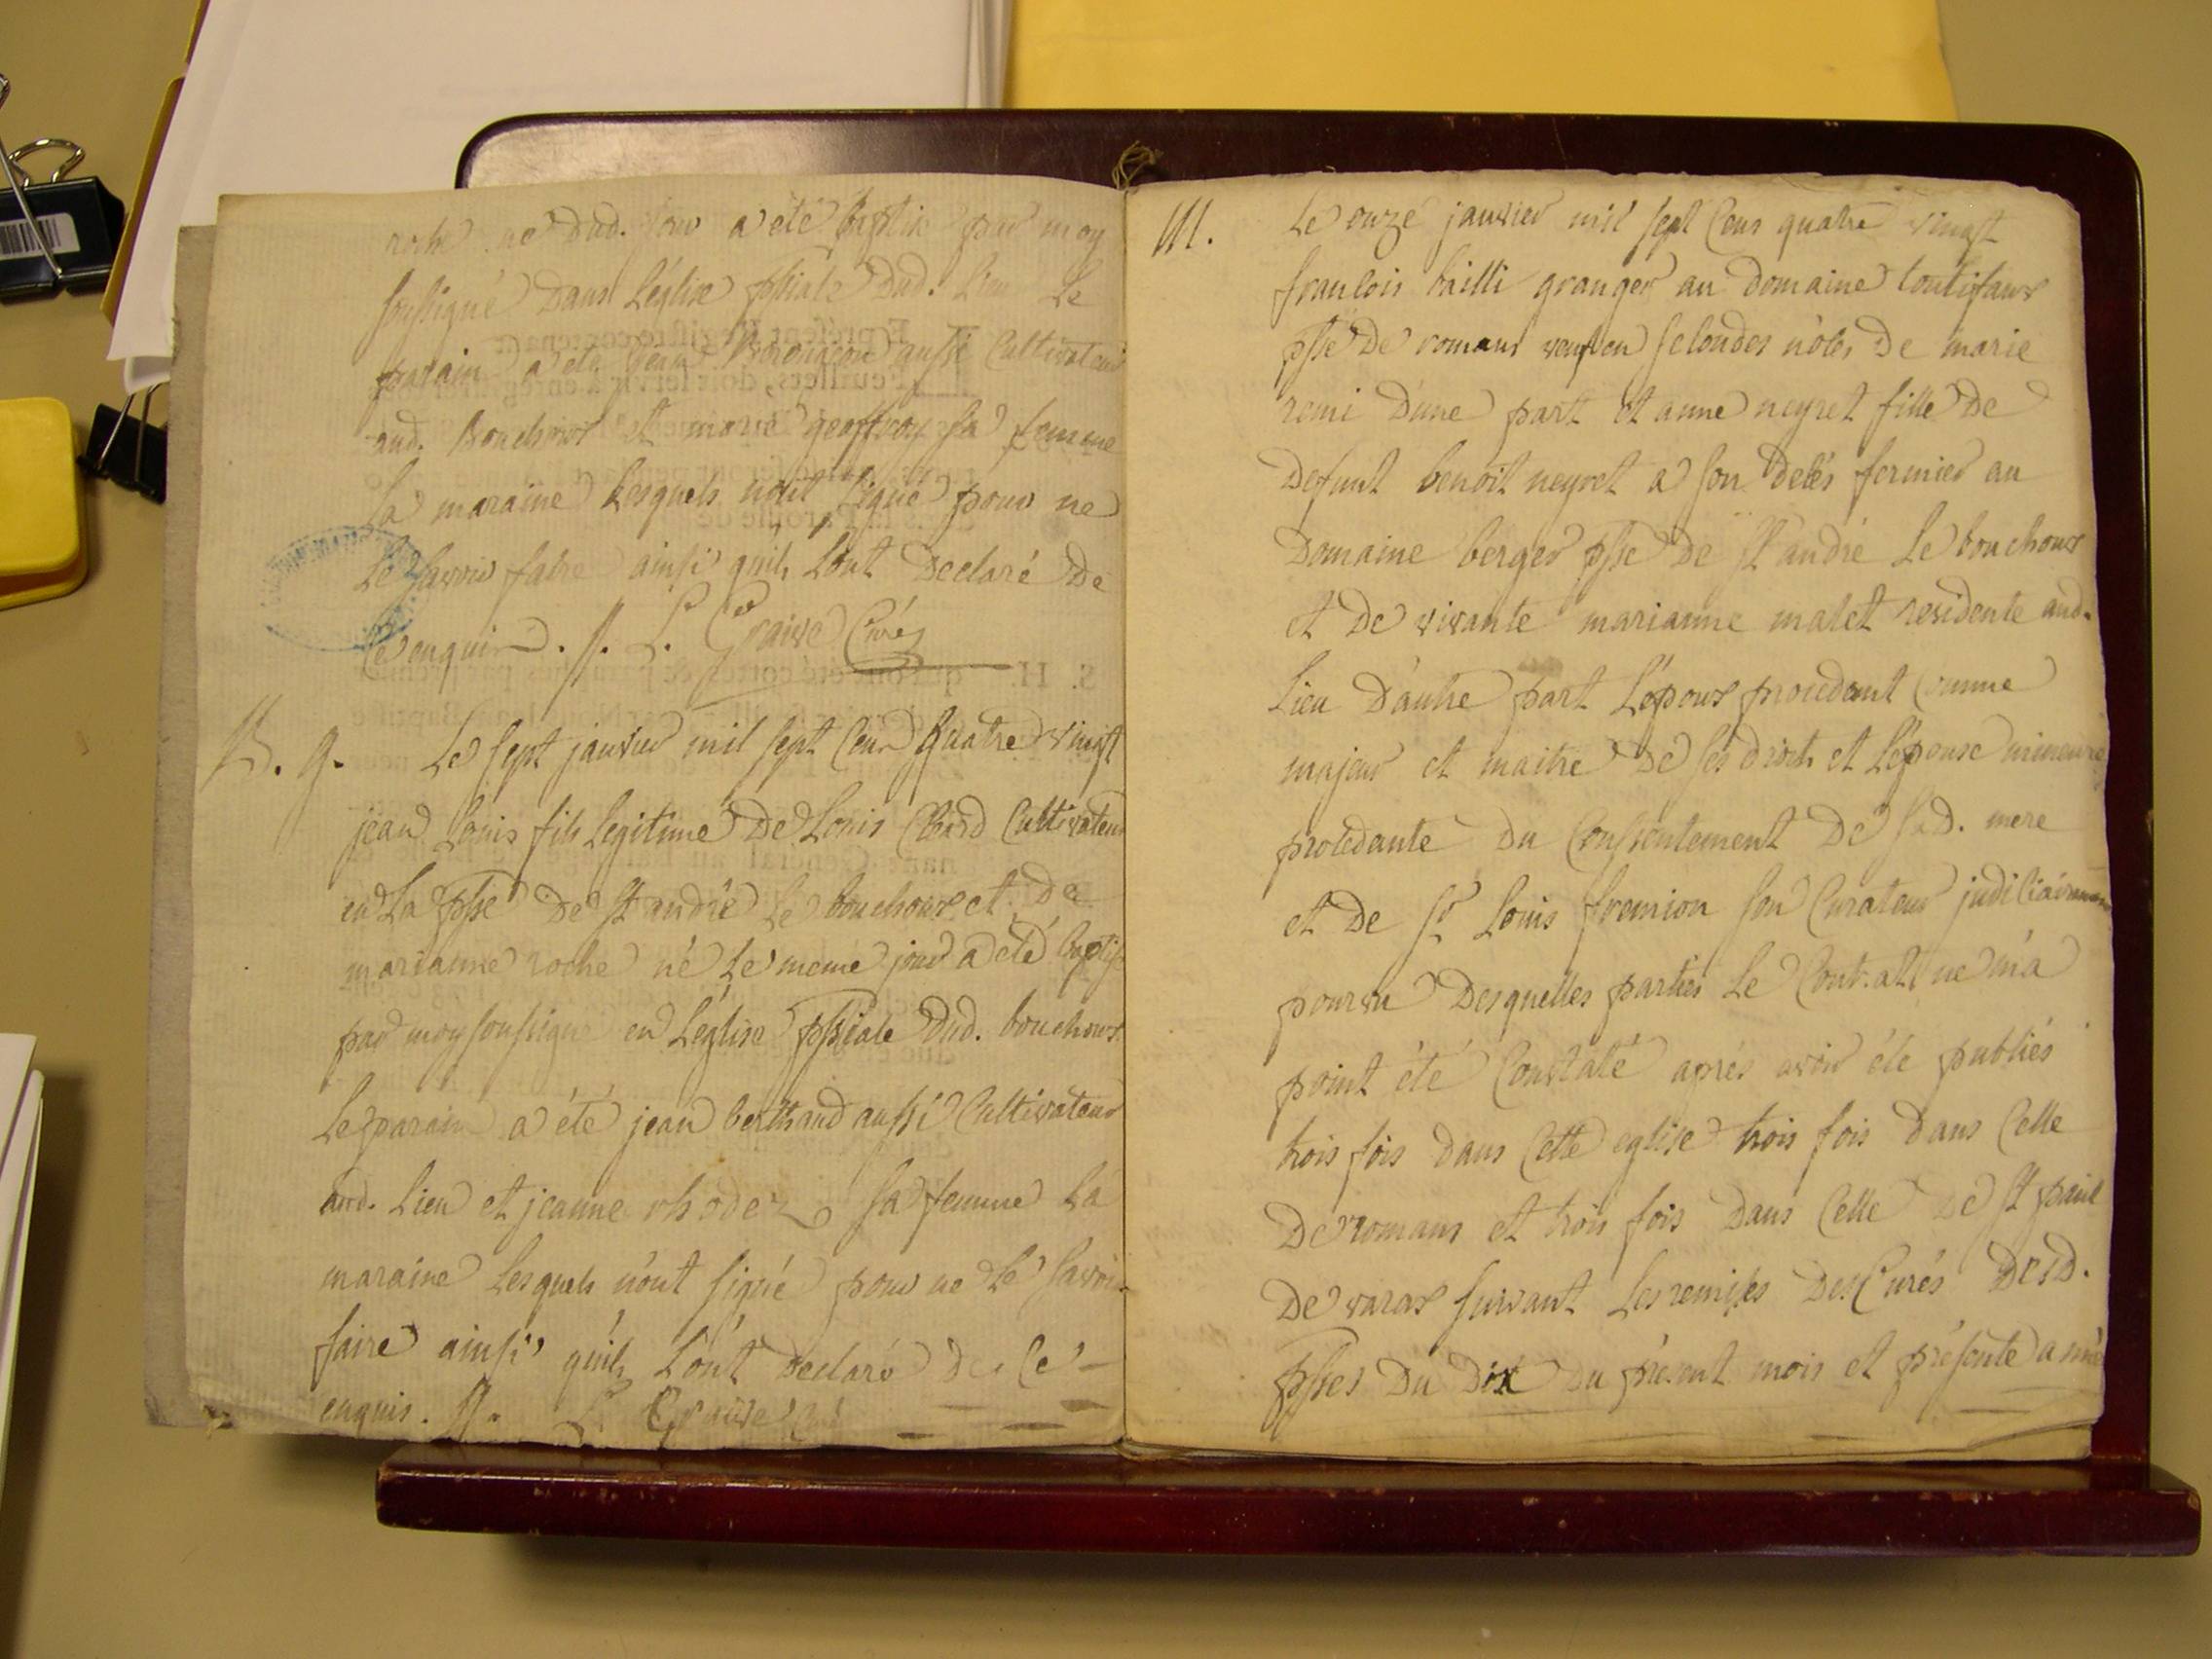 roche né dud. jour a été baptisé par moy
soussigné dans L'église pssiale dud. Lieu Le
parain a été jean aussi Cultivateur
aud. Bouchoux et marie geoffray sa femme
La maraine Lesquels n'ont signé pour ne
Le savoir faire ainsi qu'ils L'ont declaré de
Ce enquis. /. L. Graive Curé
B. g. Le sept janvier mil sept Cent Quatre vingt
jean Louis fils Legitime de Louis Cultivateur
en La psse de St andré Le bouchoux et de
marianne roche né Le meme jour a été baptisé
par moy soussigné en L'église pssiale dud. bouchoux
Le parain a été jean berthaud aussi Cultivateur
aud. Lieu et jeanne rhodez sa femme La
maraine Lesquels n'ont signé pour ne Le savoir
faire ainsi qu'ils L'ont declaré de Ce
enquis. /. L. Graive Curé
M. Le onze janvier mil sept Cens quatre vingt
francois bailli granger au domaine
psse de romans veuf en secondes nôces de marie
remi d'une part et anne neyret fille de
defunt benoit neyret a son decés fermier au
Domaine berger psse de St andré Le bouchoux
et de vivante marianne malet residente aud.
Lieu D'autre part L'epoux procedant Comme
majeur et maitre de ses droits et L'epouse mineure
procedante du Consentement de sad. mere
et de Sr Louis fremion son Curateur judiciairement
pourvu desquelles parties Le Contrat ne m'a
point été Constaté aprés avoir été publiés
trois fois dans Cette eglise trois fois dans Celle
De romans et trois fois dans Celle de St paul
De varax suivant Les remises des Curés desd.
psses du dix du présent mois et présente a